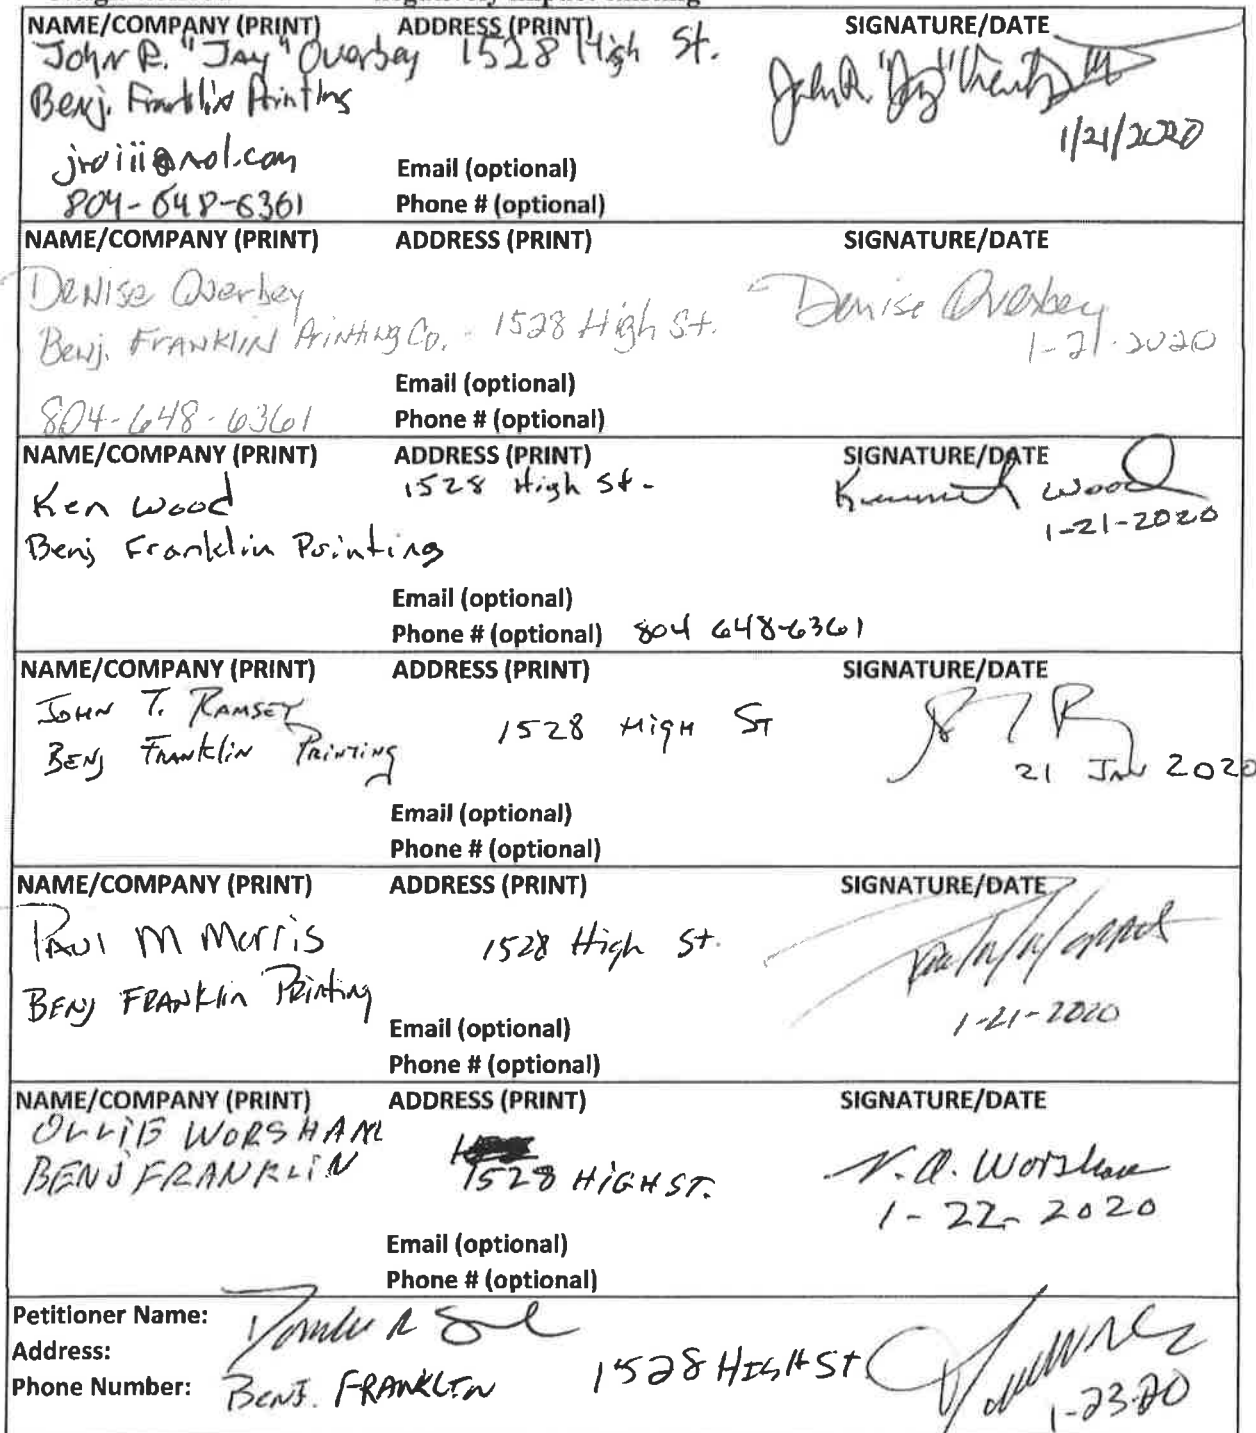 Negatively impact
NAME/COMPANY (PRINT) ADDRESS (PRINT) SIGNATURE/DATE
John R. "Jay" Overbey 1528 High St.
Benj. Franklin Printing
John R. "Jay"
1/21/2020
jroiii@aol.com Email (optional)
804-648-6361 Phone # (optional)
NAME/COMPANY (PRINT) ADDRESS (PRINT) SIGNATURE/DATE
Denise Overbey Denise Overbey
Benj. FRANKLIN Printing Co. - 1528 High St. 1-21-2020
Email (optional)
804-648-6361 Phone # (optional)
NAME/COMPANY (PRINT) ADDRESS (PRINT) SIGNATURE/DATE
Ken Wood 1528 High St. Kenneth Wood
Benj Franklin Printing 1-21-2020
Email (optional)
Phone # (optional) 804 648-6361
NAME/COMPANY (PRINT) ADDRESS (PRINT) SIGNATURE/DATE
JOHN T. RAMSEY 1528 HIGH ST
BENJ FRANKLIN PRINTING 21 JAN 2020
Email (optional)
Phone # (optional)
NAME/COMPANY (PRINT) ADDRESS (PRINT) SIGNATURE/DATE
PAUL M Morris 1528 High St.
BENJ FRANKLIN Printing 1-21-2020
Email (optional)
Phone # (optional)
NAME/COMPANY (PRINT) ADDRESS (PRINT) SIGNATURE/DATE
OLLIE WORSHAM
BENJ FRANKLIN 1528 HIGH ST. V.O. Worsham
1-22-2020
Email (optional)
Phone # (optional)
Petitioner Name:
Address:
Phone Number: BENJ. FRANKLIN 1528 HIGH ST
1-23-20